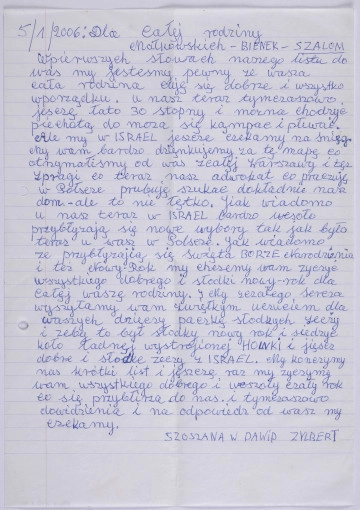 5/1/2006: Dla całej rodziny
Małkowskich - BIENEK - SZALOM
W pierwszych słowach naszego listu do
was my jesteśmy pewny że wasza
cała rodzina czuję się dobrze i wszystko
wporządku. u nasz teraz tymczasowo
jeszcze lato 30 stopny i można chodzyć
piechutą do moża się kąmpać i pływać.
Ale my w ISRAEL jeszcze czekamy na śnieg
my wam bardzo dzynkujemy za tę mapę co
otrzymaliśmy od was z całej Warszawy i też
z pragi co teraz nasz adwokat co pracuję
w Polsce prubuję szukać dokładnie nasz
dom - ale to nie łętko. Jak wiadomo
u nasz teraz w ISRAEL bardzo wesoło
przyblyżają się nowe wybory tak jak było
teraz u was w Polsce. Jak wiadomo
że przyblyżają się święta BOŻE Narodzenia
i też Nowy Rok my chcemy wam życzyć
wszystkiego dobrego i słodki nowy-rok dla
całej waszej rodziny. I my z całego serca
wysyłamy wam z wielkym uściskiem dla
waszych dzieci paczkę słodkych rzeczy
i żeby to był słodky nowy rok i siedzyć
koło ładnej wystrojonej HOINKI i jeść
dobre i słodke rzeczy z ISRAEL. My kończymy
nasz krótki list i jeszcze raz my życzymy
wam wszystkiego dobrego i wesoły cały rok
co się przybliża do nas. i tymczasowo
dowidzenia i na odpowiedź od was my
czekamy.
SZOSZANA W DAWID ZYLBERT